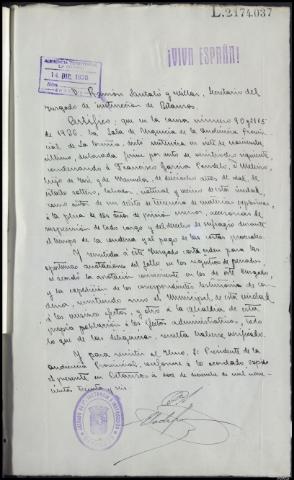 L.2174037
¡VIVA ESPAÑA!
14 DIC. 1936
D. Ramón Santaló y Millar, Secretario del
Juzgado de instrucción de Betanzos.
Certifico: que en la causa número 90 y 115
de 1936, la Sala de Urgencia de la Audiencia Provin-
cial de La Coruña, dictó sentencia en siete de noviembre
último, declarada firme por auto de veintiséis siguiente,
condenando a Francisco García
hijo de José y de de dieciocho años de edad, de
estado soltero, labrador, natural y vecino de esta ciudad,
como autor de un delito de tenencia de materias explosivas,
a la pena de dos años de prisión menor, accesorias de
suspensión de todo cargo y del derecho de sufragio durante
el tiempo de la condena y al pago de las costas procesales.
Y remitida a este Juzgado carta orden para las
oportunas anotaciones del fallo en los registros de penados,
se acordó la anotación conveniente en los de este Juzgado,
y la expedición de los correspondientes testimonios de con-
dena, remitiendo uno al Municipal de esta ciudad
a los mismos efectos, y otro a la Alcaldía de esta
propia población a los efectos administrativos, todo
lo que de las diligencias resulta haberse verificado.
Y para remitir al Ilmo. Sr. Presidente de la
Audiencia Provincial, conforme a lo acordado expido
el presente en Betanzos a de de mil nove-
cientos treinta y seis